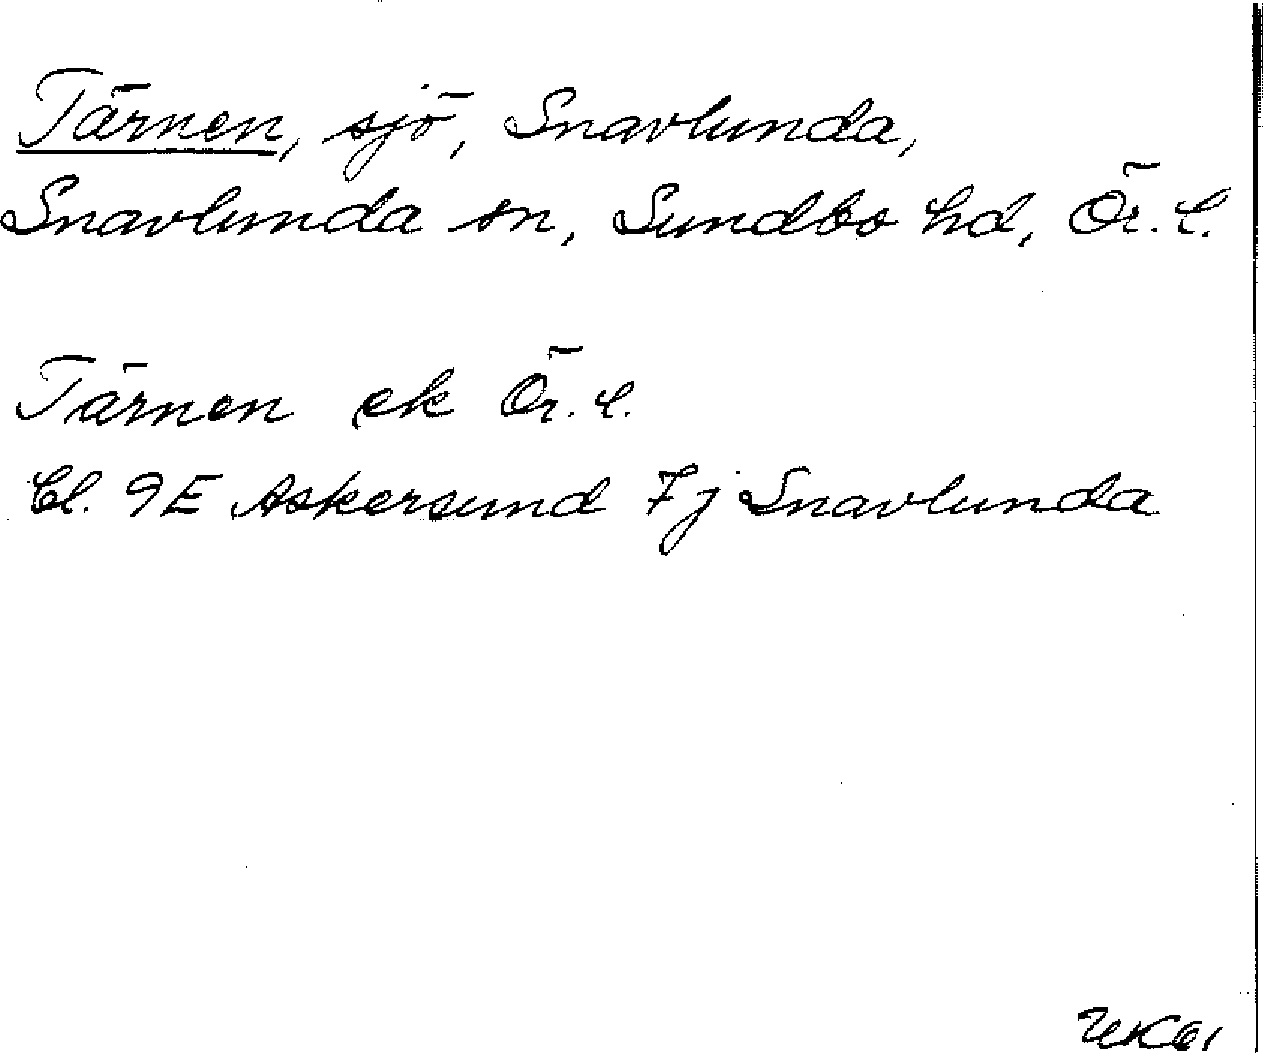 Tärnen, sjö, Snavlunda,
Snavlunda sn, Sundbo hd, Ör. l.
Tärnen ek Ör. l.
Bl. 9E Askersund 7j Snavlunda